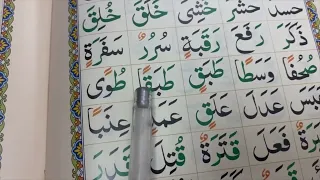 حَسَدَ حَشَرَ خَشِيَ خَلَقَ خُلُقٍ
ذَكَرَ رَفَعَ رَقَبَةٍ سُرُرٌ سَفَرَةٍ
صُحُفًا وَسَطًا طَبَقٍ طَبَقًا طُوًى
عَدَلَ عَلَقٍ عِنَبًا
فَعَلَ قَتَرَةٌ قُتِلَ